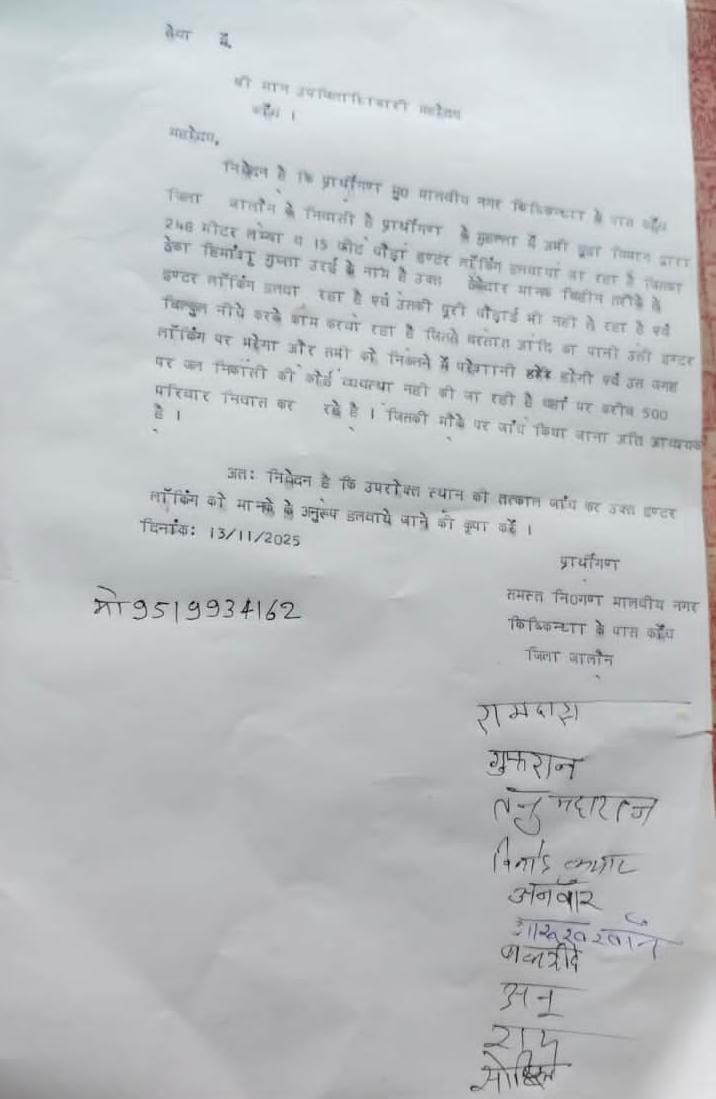 सेवा में,
श्री मान उपजिलाधिकारी महोदय
कोंच ।
महोदय,
निवेदन है कि प्रार्थीगण मु0 मालवीय नगर किष्किन्धा के पास कोंच
जिला जालौन के निवासी है प्रार्थीगण के मुहल्ला में अभी डूडा विभाग द्वारा
248 मीटर लम्बा व 15 फीट चौड़ा इण्टर लॉकिंग डलवाया जा रहा है जिसका
ठेका हिमांशू गुप्ता उरई के नाम है उक्त ठेकेदार मानक विहीन तरीके से
इण्टर लॉकिंग डलवा रहा है एवं उसकी पूरी चौड़ाई भी नही ले रहा है एवं
बिल्कुल नीचे करके काम करवा रहा है जिससे बरसात आदि का पानी उसी इण्टर
लॉकिंग पर भरेगा और सभी को निकलने में परेशानी होगी एवं उस जगह
पर जल निकासी की कोई व्यवस्था नही की जा रही है वहां पर करीब 500
परिवार निवास कर रहे है । जिसकी मौके पर जांच किया जाना अति आवश्यक
है ।
अतः निवेदन है कि उपरोक्त स्थान की तत्काल जांच कर उक्त इण्टर
लॉकिंग को मानक के अनुरूप डलवाये जाने की कृपा करें ।
दिनांक: 13/11/2025
प्रार्थीगण
समस्त नि0गण मालवीय नगर
किष्किन्धा के पास कोंच
जिला जालौन
मो 9519934162
रामदास
गुफरान
तनु महाराज
विनोद कुमार
अनवार
शाहरुख खॉन
अनू